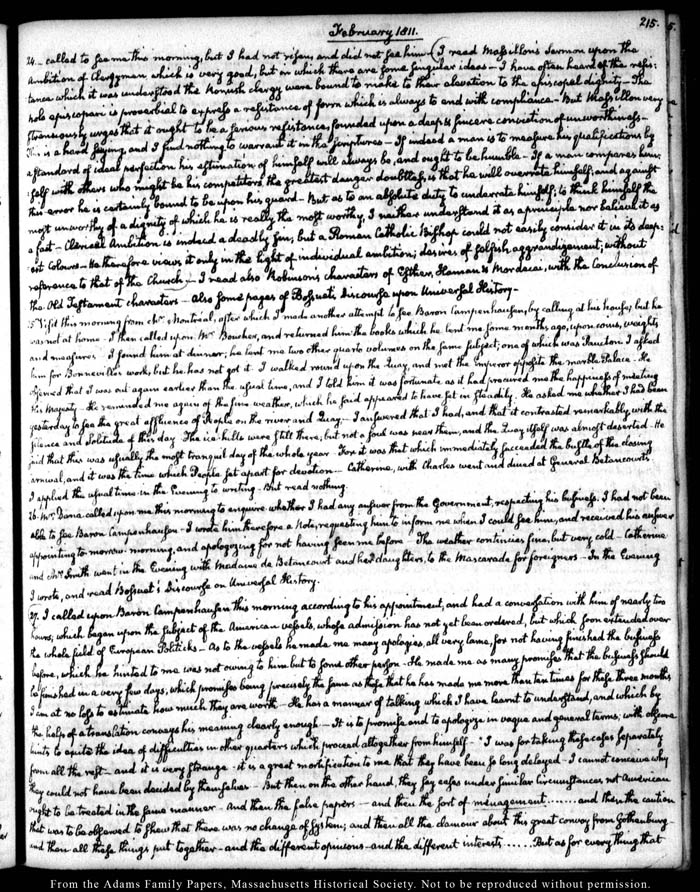 215.
February 1811.
24. called to see me this morning, but I had not risen, and did not see him (I read Massillon's Sermon upon the
Ambition of Clergyman, which is very good, but in which there are some singular ideas. I have often heard of the resis:
tance which it was understood the Romish clergy were bound to make to their elevation to the episcopal dignity. The
nolo episcopari is proverbial to express a resistance of form which is always to end with compliance. But Massillon very
strenuously urges that it ought to be a serious resistance, founded upon a deep & sincere conviction of unworthiness.
This is a hard saying, and I find nothing to warrant it in the Scriptures. If indeed a man is to measure his qualifications by
a standard of ideal perfection his estimation of himself will always be, and ought to be humble. If a man compares him:
self with others who might be his competitors the greatest danger doubtless, is that he will overrate himself, and against
this error he is certainly bound to be upon his guard. But as to an absolute duty to underrate himself; to think himself the
most unworthy of a dignity of which he is really the most worthy, I neither understand it as a principle nor believe it as
a fact. Clerical Ambition is indeed a deadly Sin; but a Roman Catholic Bishop could not easily consider it in its deep:
est Colours. He therefore views it only in the light of individual ambition; desires of selfish aggrandizement, without
reference to that of the Church.) I read also Robinson's characters of Esther, Haman & Mordecai, with the Conclusion of
the Old Testament characters. Also some pages of Bossuet's Discourse upon Universal History.
25. Visit this morning from Mr. Montréal, after which I made another attempt to see Baron Campenhausen, by calling at his house; but he
was not at home. I then called upon Mr. Bowker, and returned him the books which he lent me some months ago, upon coins, weights,
and measures. I found him at dinner; he lent me two other quarto volumes on the same subject; one of which was Paucton. I asked
him for Bonneville's work, but he has not got it. I walked round upon the Quay, and met the Emperor opposite the marble Palace. He
observed that I was out again earlier than the usual time, and I told him it was fortunate as it had procured me the happiness of meeting
His Majesty. He reminded me again of the fine weather, which he said appeared to have set in steadily. He asked me whether I had been
yesterday to see the great affluence of People on the river and Quay. I answered that I had, and that it contrasted remarkably with the
silence and Solitude of this day. The ice-hills were still there, but not a soul was near them, and the Quay itself was almost deserted. He
said that this was usually the most tranquil day of the whole year. For it was that which immediately succeeded the bustle of the closing
carnival, and it was the time which People set apart for devotion. Catherine, with Charles went and dined at General Betancourt's
I applied the usual time in the Evening to writing. But read nothing.
26. Mr. Dana called upon me this morning to enquire whether I had any answer from the Government, respecting his business. I had not been
able to see Baron Campenhausen. I wrote him therefore a Note, requesting him to inform me when I could see him, and received his answer
appointing to-morrow morning, and apologizing for not having seen me before. The weather continues fine, but very cold. Catherine
and Mr. Smith went in the Evening with Madame de Betancourt and her daughters, to the Mascarade for foreigners. In the Evening
I wrote, and read Bossuet's Discourse on Universal History.
27. I called upon Baron Campenhausen this morning according to his appointment, and had a conversation with him of nearly two
hours, which began upon the subject of the American vessels, whose admission has not yet been ordered, but which soon extended over
the whole field of European Politicks. As to the vessels he made me many apologies, all very lame, for not having finished the business
before, which he hinted to me was not owing to him but to some other person. He made me as many promises that the business should
be finished in a very few days, which promises being precisely the same as those that he has made me more than ten times for these three months
I am at no loss to estimate how much they are worth. He has a manner of talking which I have learnt to understand, and which by
the help of a translation conveys his meaning clearly enough. It is to promise and to apologize in vague and general terms, with obscure
hints to excite the idea of difficulties in other quarters which proceed altogether from himself. "I was for taking these cases separately
from all the rest. and it very strange. it is a great mortification to me that they have been so long delayed. I cannot conceive why
they could not have been decided by themselves. But then on the other hand, they say cases under similar circumstances not American
ought to be treated in the same manner. And then the false papers. and then the sort of ménagement....... and then the caution
that was to be observed to shew that there was no change of System; and then all the clamour about this great convoy from Gothenburg
and then all these things put together. and the different opinions. and the different interests...... But as for every thing that
From the Adams Family Papers, Massachusetts Historical Society. Not to be reproduced without permission.